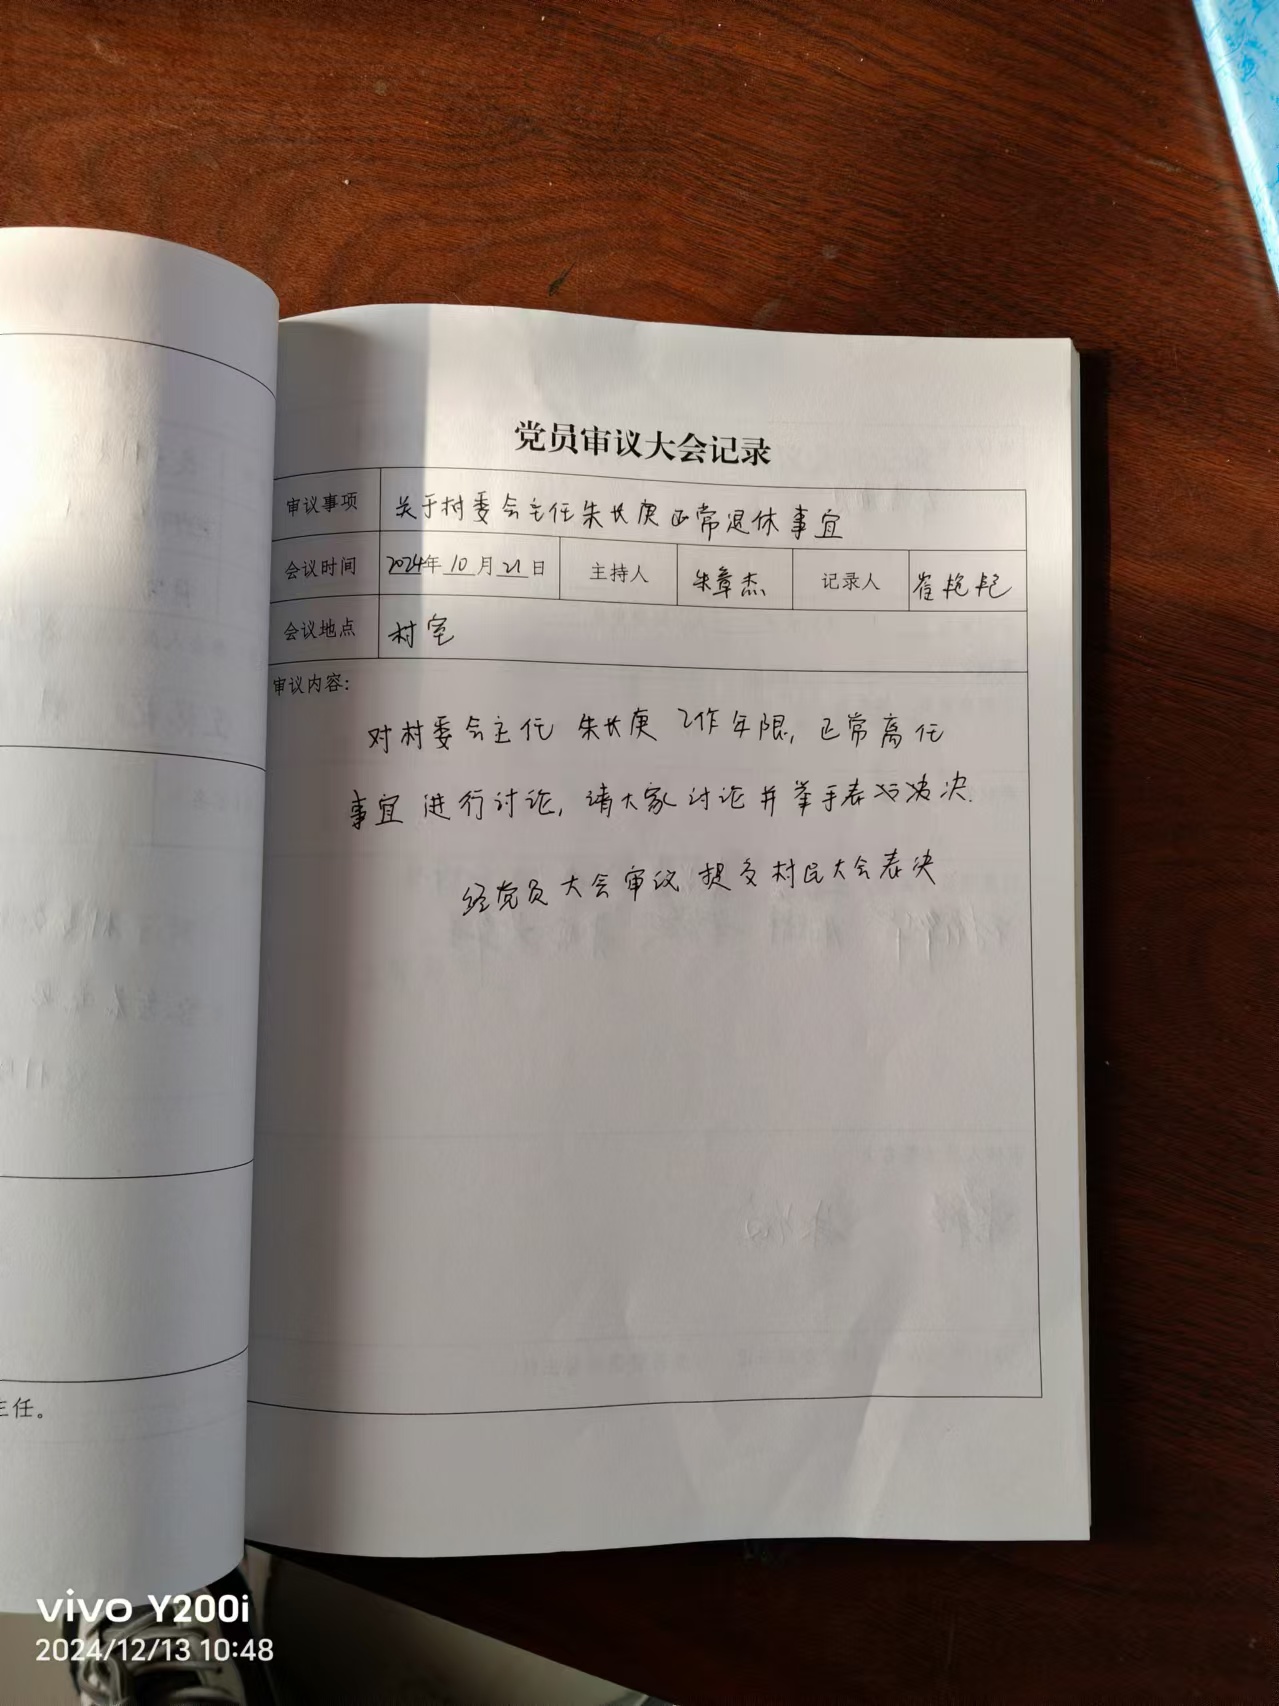 党员审议大会记录
审议事项 关于村委会主任朱长庚正常退休事宜
会议时间 2024年10月21日 主持人 朱章杰 记录人 崔艳艳
会议地点 村室
审议内容:
对村委会主任 朱长庚 工作年限, 正常离任
事宜 进行讨论, 请大家讨论并举手表决.
经党员大会审议 提交村民大会表决
主任。
vivo Y200i
2024/12/13 10:48